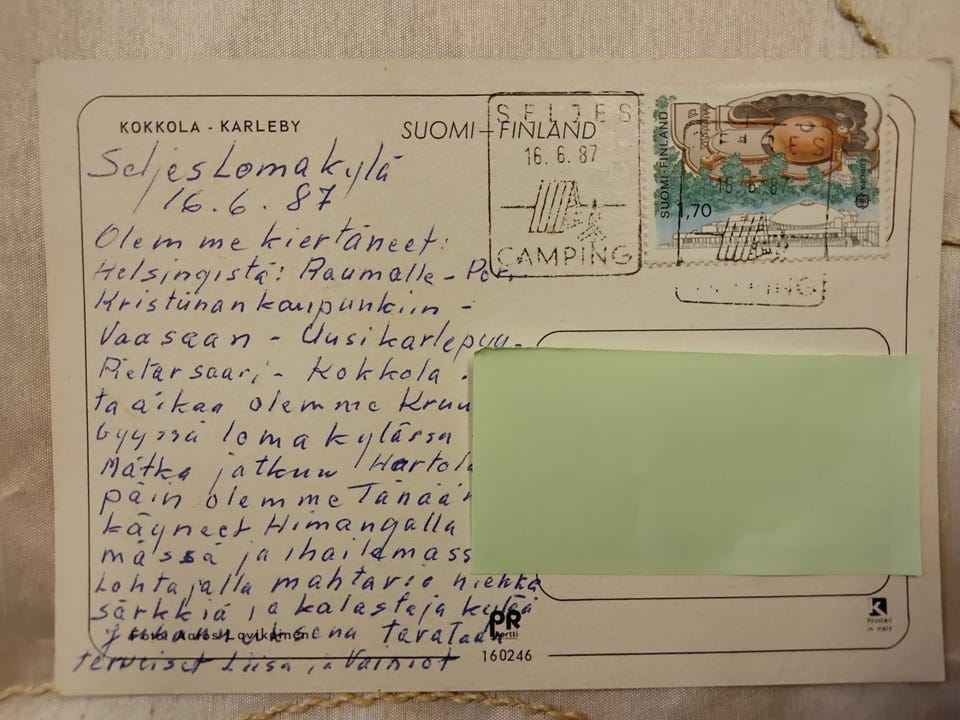 KOKKOLA - KARLEBY
SUOMI-FINLAND
SELJES
16. 6. 87
CAMPING
SUOMI-FINLAND
1,70
EUROPA
SeljesLomakylä
16.6.87
Olemme kiertäneet:
Helsingistä: Raumalle - Pori
Kristiinankaupunkiin -
Vaasaan - Uusikarlepyy -
Pietarsaari - Kokkola.
ta aikaa olemme Kruu
byyssä lomakylässä
Matka jatkuu Hartola
päin olemme Tänään
käyneet Himangalla
mässä ja ihailemass
Lohtajalla mahtavia hiekka
särkkiä ja kalastaja kylää
Tavataan
terveiset Liisa ja Väinöt
PR
kortti
160246
Printed
in Italy